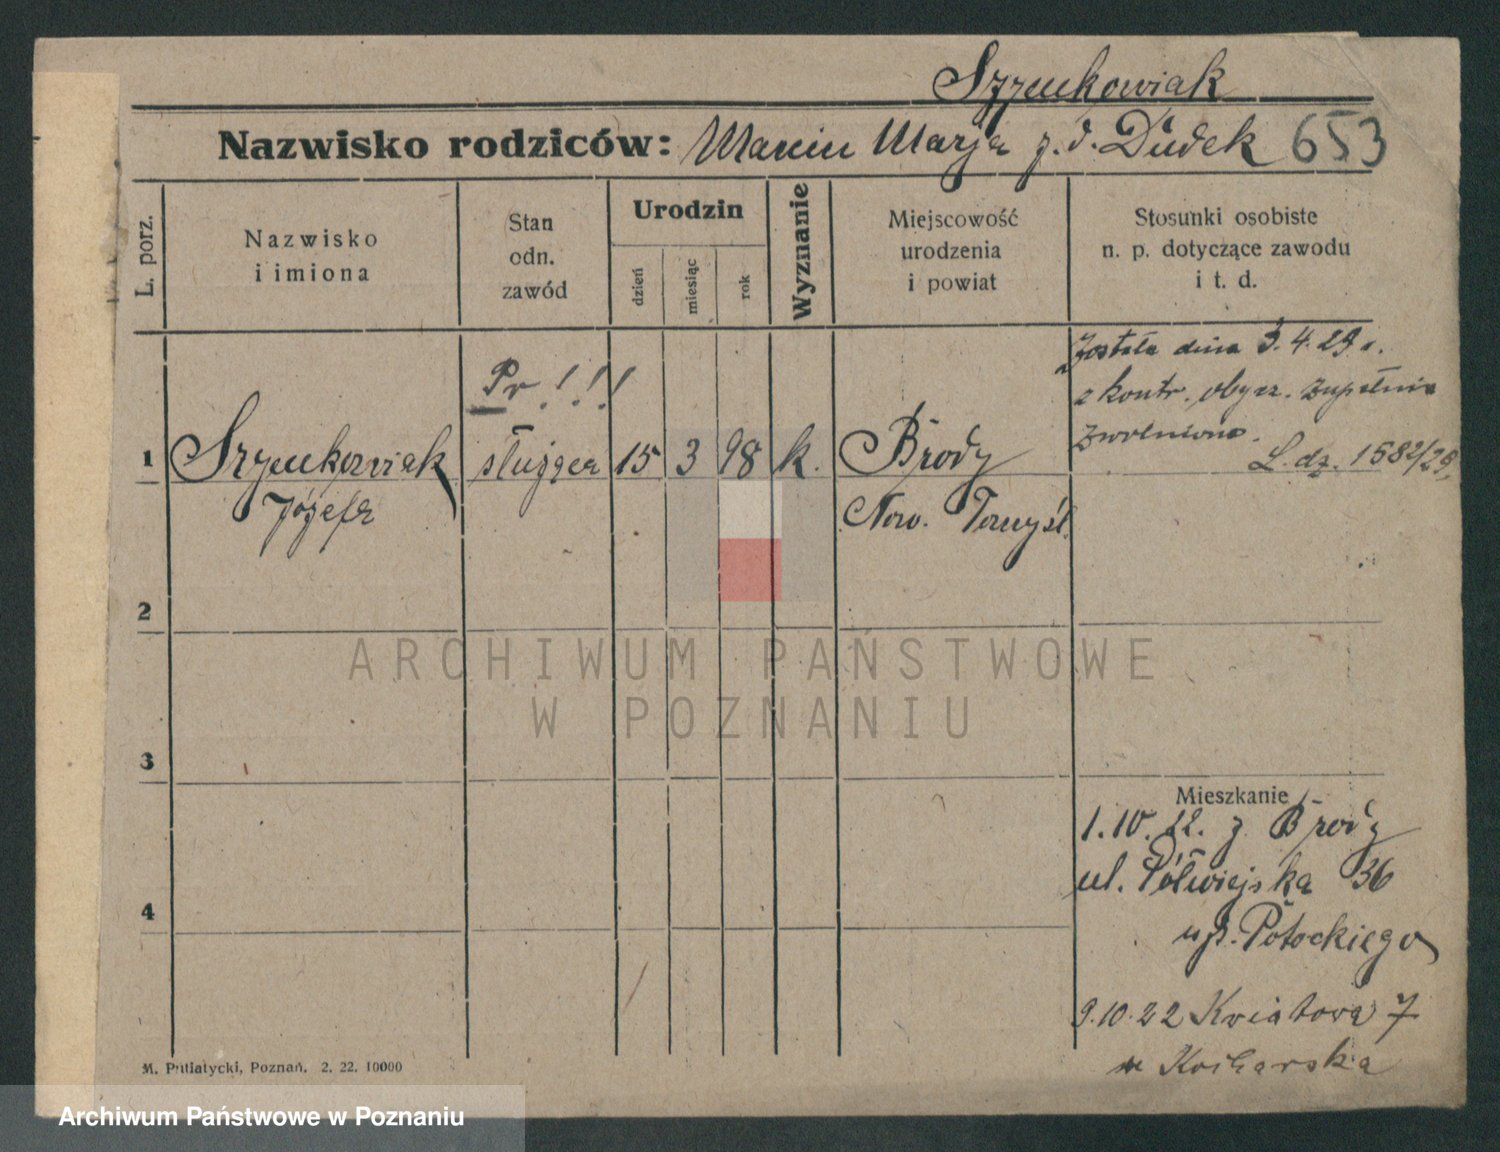 Szymkowiak
Nazwisko rodziców: Marcin Marja z.d. Dudek 653
L. porz.
Nazwisko
i imiona
Stan
odn.
zawód
Urodzin
dzień
miesiąc
rok
Wyznanie
Miejscowość
urodzenia
i powiat
Stosunki osobiste
n. p. dotyczące zawodu
i t. d.
Została dnia 3.4.29 r.
z kontr. obycz. zupełnie
zwolniona.
L. dz. 1582/29.
Pr!!!
1 Szymkowiak służąca 15 3 98 k. Brody
Józefa Now. Tomyśl.
2
3
4
ARCHIWUM PAŃSTWOWE
W POZNANIU
Mieszkanie
1.10.22. z Brody
ul. Półwiejska 36
u p. Potockiego
9.10.22 Kwiatowa 7
u Kocharska
M. Putiatycki, Poznań. 2. 22. 10000
Archiwum Państwowe w Poznaniu